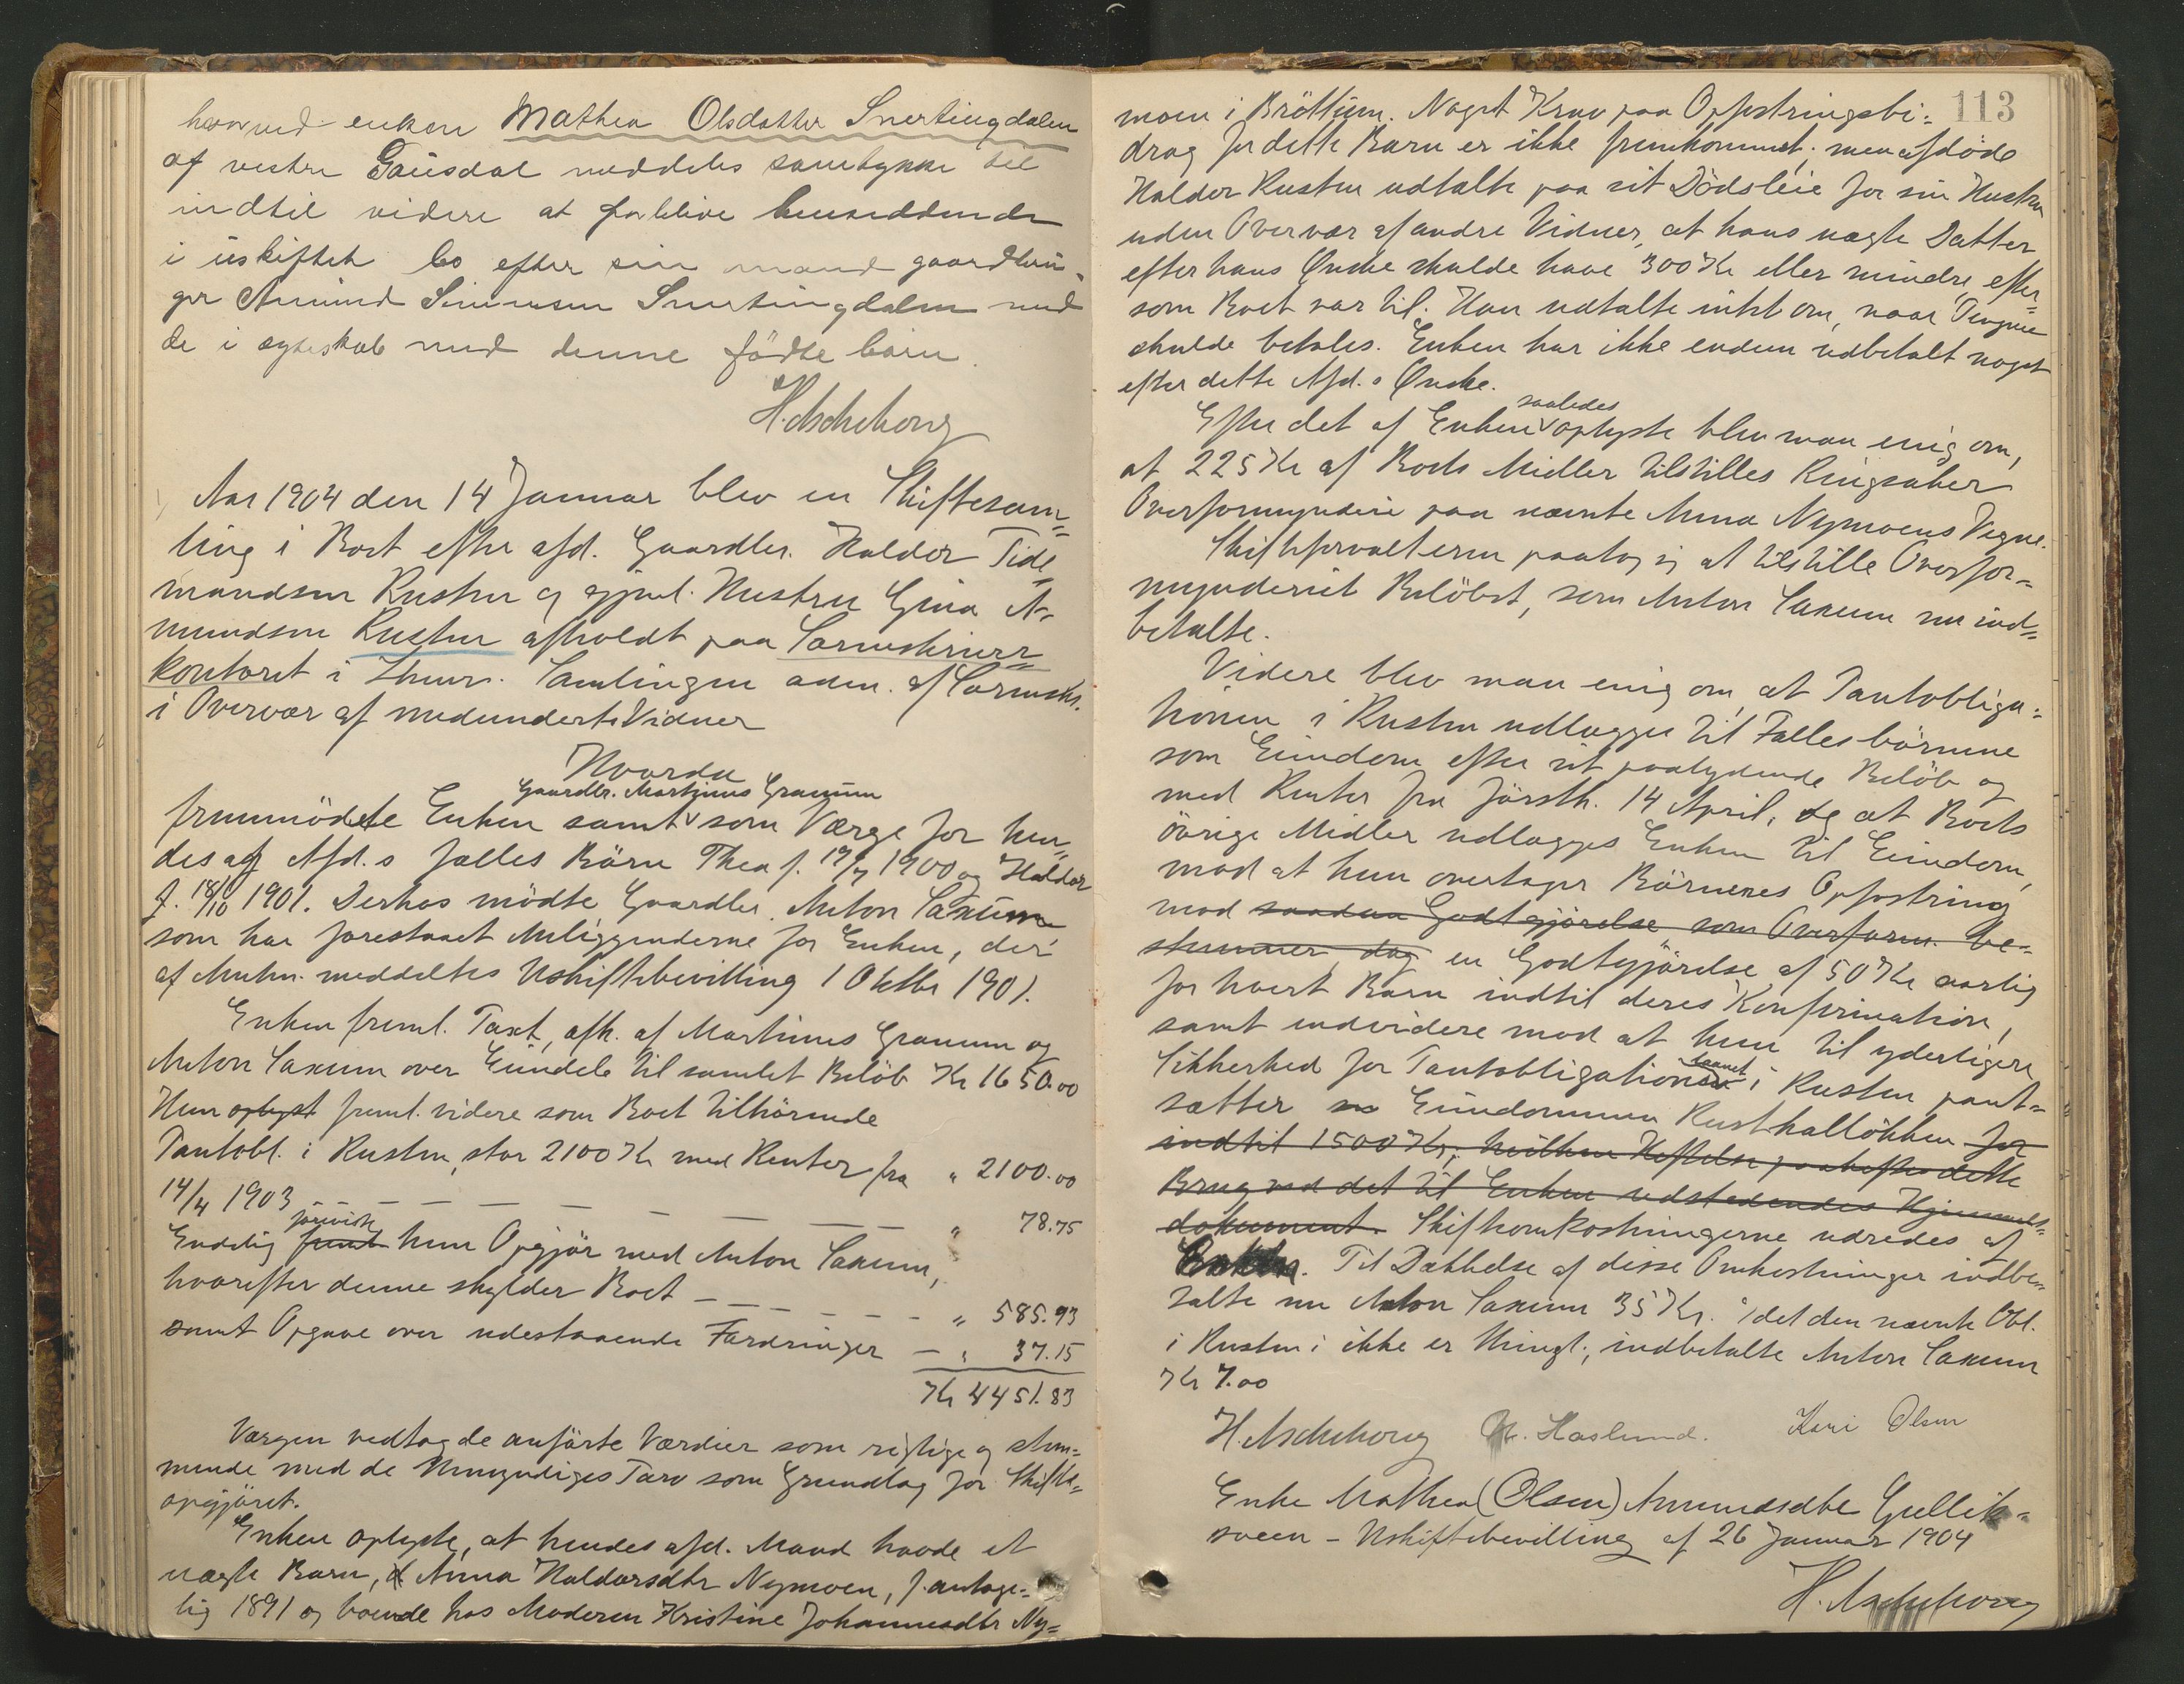 hvorved enken Mathea Olsdatter Snertingdalen
af vestre Gausdal meddeles samtykke til
indtil videre at forblive hensiddende
i uskiftet bo efter sin mand gaardbru-
ger Amund Simensen Snertingdalen med
de i egteskab med denne födte börn.
H. Aschehoug
Aar 1904 den 14 Januar blev en Skiftesam=
ling i Boet efter afd. Gaardbr. Haldor Tide=
mandsen Rusten og gjenl. Hustru Gina A=
mundsen Rusten afholdt paa Sorenskriver=
kontoret i Lhmr. Samlingen adm. af Sorensk.
i Overvær af medunderte Vidner
Hvorda
Gaardbr. Martinus Granum
fremmödte Enken samt som Værge for hen=
des og Afd.s fælles Börn Thea f. 19/7 1900 og Haldor
f. 18/10 1901. Derhos mödte Gaardbr. Anton Saxum
som har forestaaet Anliggenderne for Enken, der
af Amtm. meddeltes Uskiftebevilling 1 Oktbr 1901.
Enken freml. Taxt, afh. af Martinus Granum og
Anton Saxum over Eiendele til samlet Belöb Kr 1650.00
Hun oplyst freml. videre som Boet tilhörende
Pantobl. i Rusten, stor 2100 Kr med Renter fra " 2100.00
14/4 1903 — — — — — — — " 78.75
Endelig foreviste freml. hun Opgjör med Anton Saxum,
hvorefter denne skylder Boet — — — — — " 585.93
samt Opgave over udestaaende Fordringer — " 37.15
Kr 4451.83
Værgen vedtog de anförte Værdier som rigtige og stem=
mende med de Umyndiges Tarv som Grundlag for Skifte=
opgjöret.
Enken oplyste, at hendes afd. Mand havde et
uægte Barn, Anna Haldorsdtr Nymoen, f. antage=
lig 1891 og boende hos Moderen Kristine Johannesdtr Ny=
113
moen i Bröttum. Noget Krav paa Opfostringsbi=
drag for dette Barn er ikke fremkommet; men afdöde
Haldor Rusten udtalte paa sit Dödsleie for sin Hustru
uden Overvær af andre Vidner, at hans uægte Datter
efter hans Önske skulde have 300 Kr eller mindre, efter=
som Boet var til. Han udtalte intet om, naar Pengene
skulde betales. Enken har ikke endnu udbetalt noget
efter dette Afd.s Önske.
Efter det af Enken saaledes oplyste blev man enig om,
at 225 Kr af Boets Midler tilstilles Ringsaker
Overformynderi paa nævnte Anna Nymoens Vegne.
Skifteforvalteren paatog sig at tilstille Overfor=
mynderiet Belöbet, som Anton Saxum nu ind=
betalte.
Videre blev man enig om, at Pantobliga=
tionen i Rusten udlægges til Fællesbörnene
som Eiendom efter sit paalydende Belöb og
med Renter fra förstk. 14 April, og at Boets
övrige Midler udlægges Enken til Eiendom,
mod at hun overtager Börnenes Opfostring
mod saadan Godtgjörelse som Overform. be=
stemmer, dog en Godtgjörelse af 50 Kr aarlig
for hvert Barn indtil deres Konfirmation,
samt endvidere mod at hun til yderligere
Sikkerhed for Pantobligationen i Rusten pant=
sætter Eiendommen Rusthallökken for
indtil 1500 Kr, hvilken Heftelse paaheftes dette
Brug ved det til Enken udstedendes Hjemmels=
dokument. Skifteomkostningerne udredes af
Enken. Til Dækkelse af disse Omkostninger indbe=
talte nu Anton Saxum 35 Kr. Idet den nævnte Obl.
i Rusten ikke er thingl., indbetalte Anton Saxum
Kr 7.00
H. Aschehoug Haslund. Kari Olsen
Enke Mathea (Olsen) Amundsdtr Gullik=
sveen – Uskiftebevilling af 26 Januar 1904
H. Aschehoug